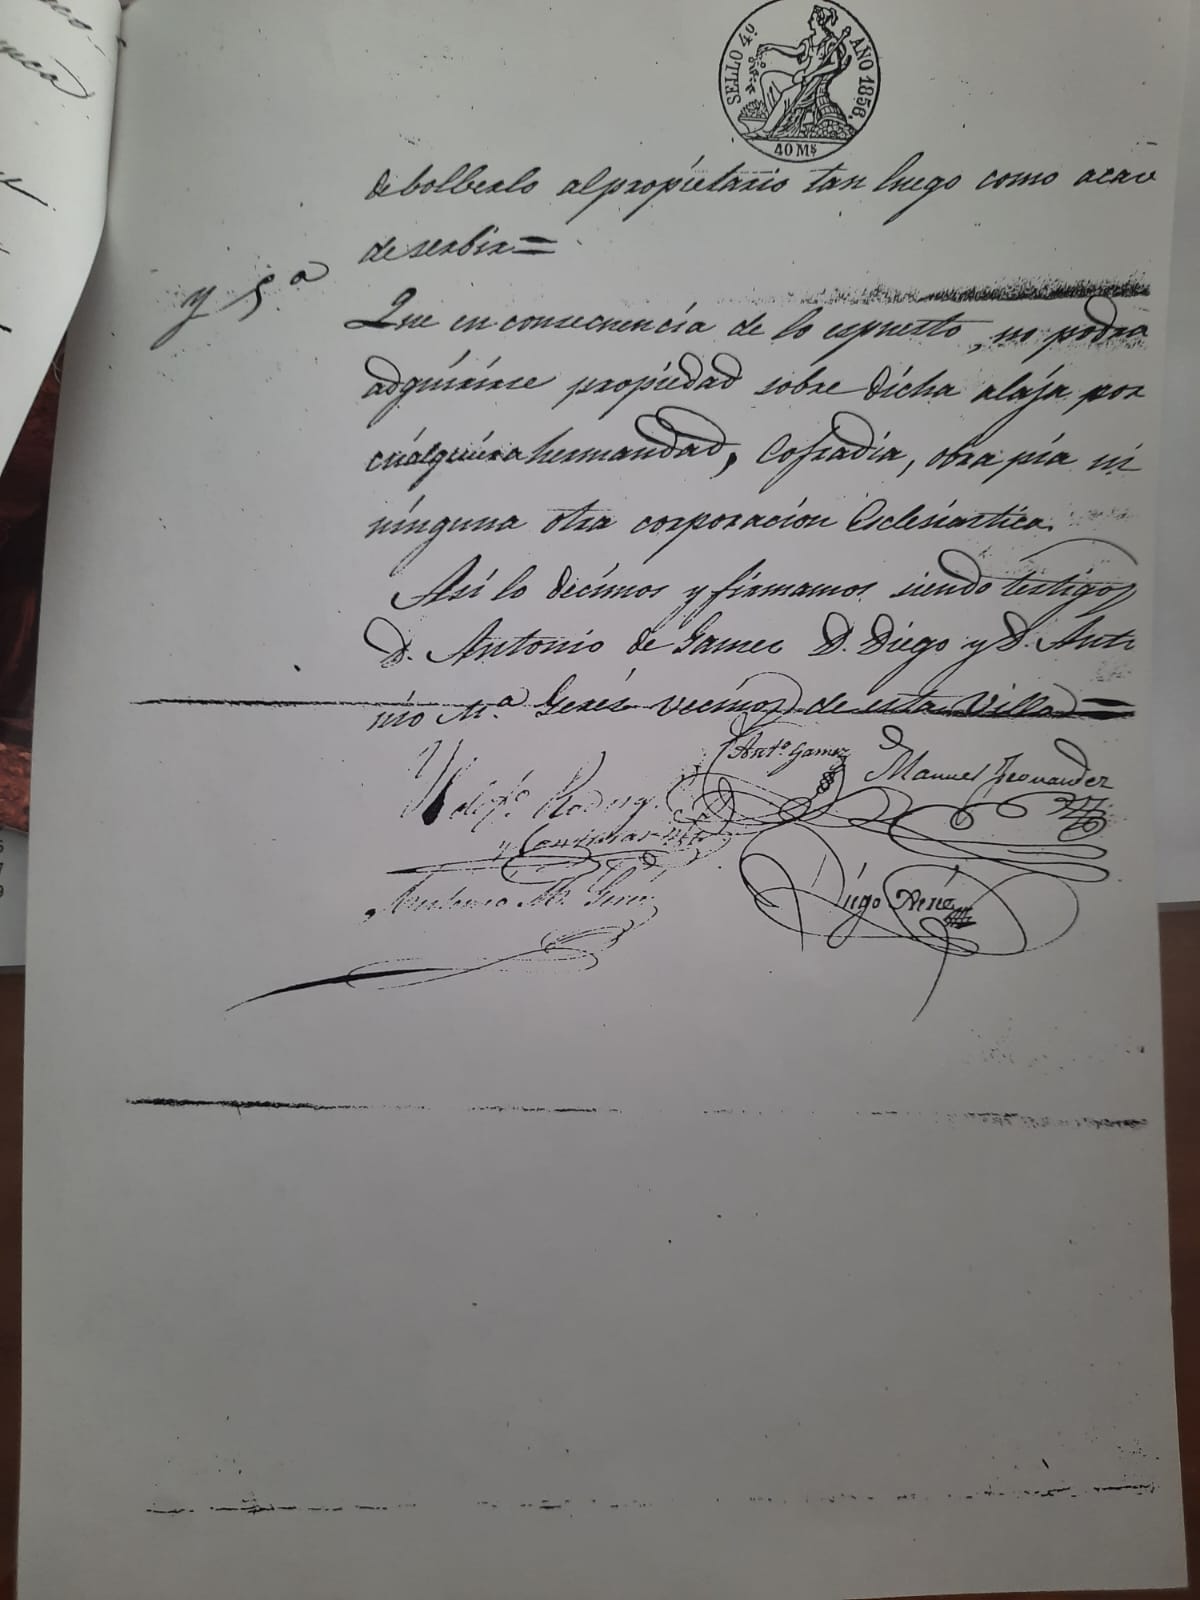 SELLO 4º AÑO 1856.
40 Ms
debolberlo al propietario tan luego como acave
de serbir=
y 5.ª
Que en consecuencia de lo espuesto, no podra
adquirirse propiedad sobre dicha alaja por
cualquiera hermandad, Cofradia, obra pia ni
ninguna otra corporacion Eclesiastica.
Asi lo decimos y firmamos siendo testigos
D. Antonio de Gamez D. Diego y D. Anto
nio M.ª Gerés vecinos de esta Villa=
Ant.º Gamez
Manuel Fernandez
Rodrig.
Antonio M.ª Gerés
Diego